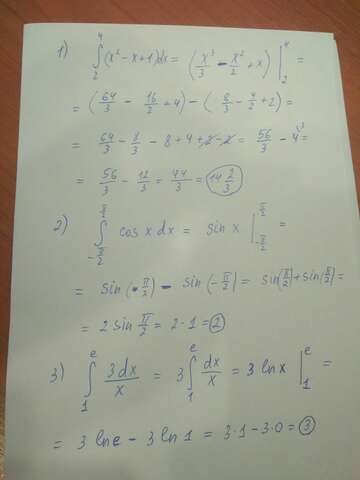 1) ∫₂⁴ (x² − x + 1)dx = (x³/3 − x²/2 + x) |₂⁴ =
= (64/3 − 16/2 + 4) − (8/3 − 4/2 + 2) =
= 64/3 − 8/3 − 8 + 4 + 2 − 2 = 56/3 − 4 =
= 56/3 − 12/3 = 44/3 = 14 2/3
2) ∫_{−π/2}^{π/2} cos x dx = sin x |_{−π/2}^{π/2} =
= sin(π/2) − sin(−π/2) = sin(π/2) + sin(π/2) =
= 2 sin π/2 = 2·1 = 2
3) ∫₁ᵉ 3dx/x = 3 ∫₁ᵉ dx/x = 3 ln x |₁ᵉ =
= 3 ln e − 3 ln 1 = 3·1 − 3·0 = 3